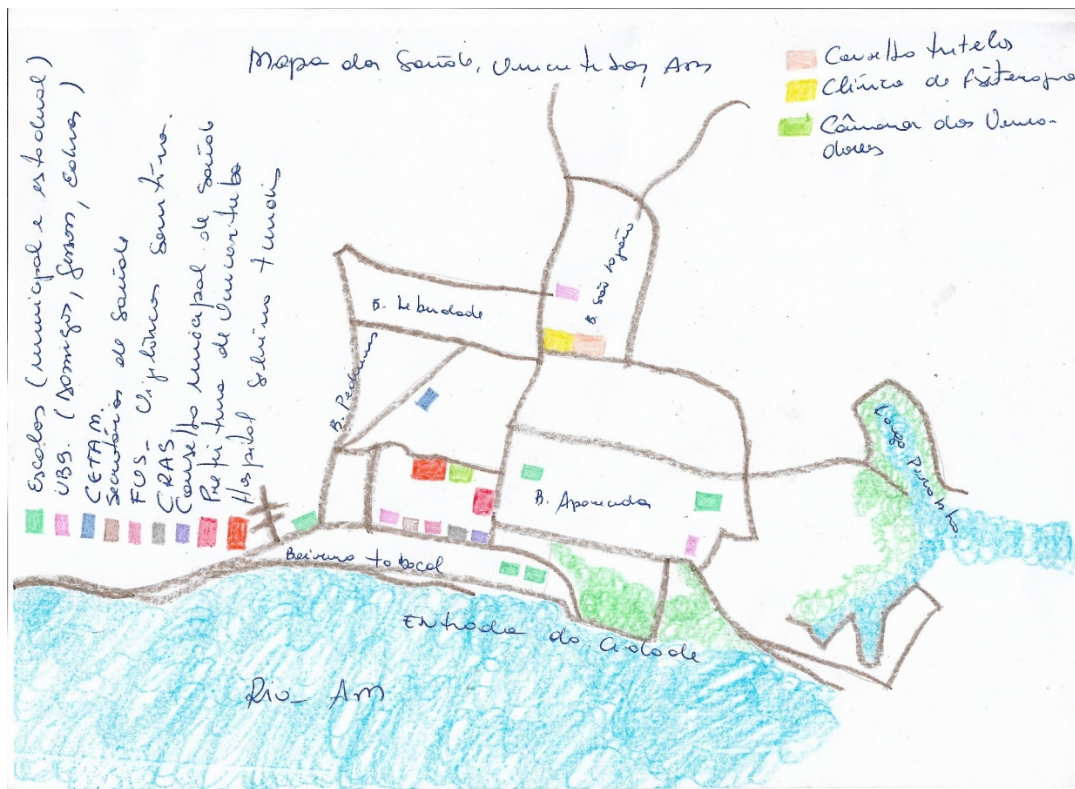 Mapa da Saúde, Urucurituba, Am
Conselho tutelar
Clínica de fisioterapia
Câmara dos Verea-
dores
Escolas (municipal e estadual)
UBS. (Domingos, Gerson, Ednas)
CETAM.
Secretários de saúde
FUS - Vigilância Sanitária.
CRAS
Conselho municipal de saúde
Prefeitura de Urucurituba
Hospital
B. São João
B. Liberdade
B. Pedreiras
B. Aparecida
Beirura tobocal
Entrada da cidade
Rio Am
Lago